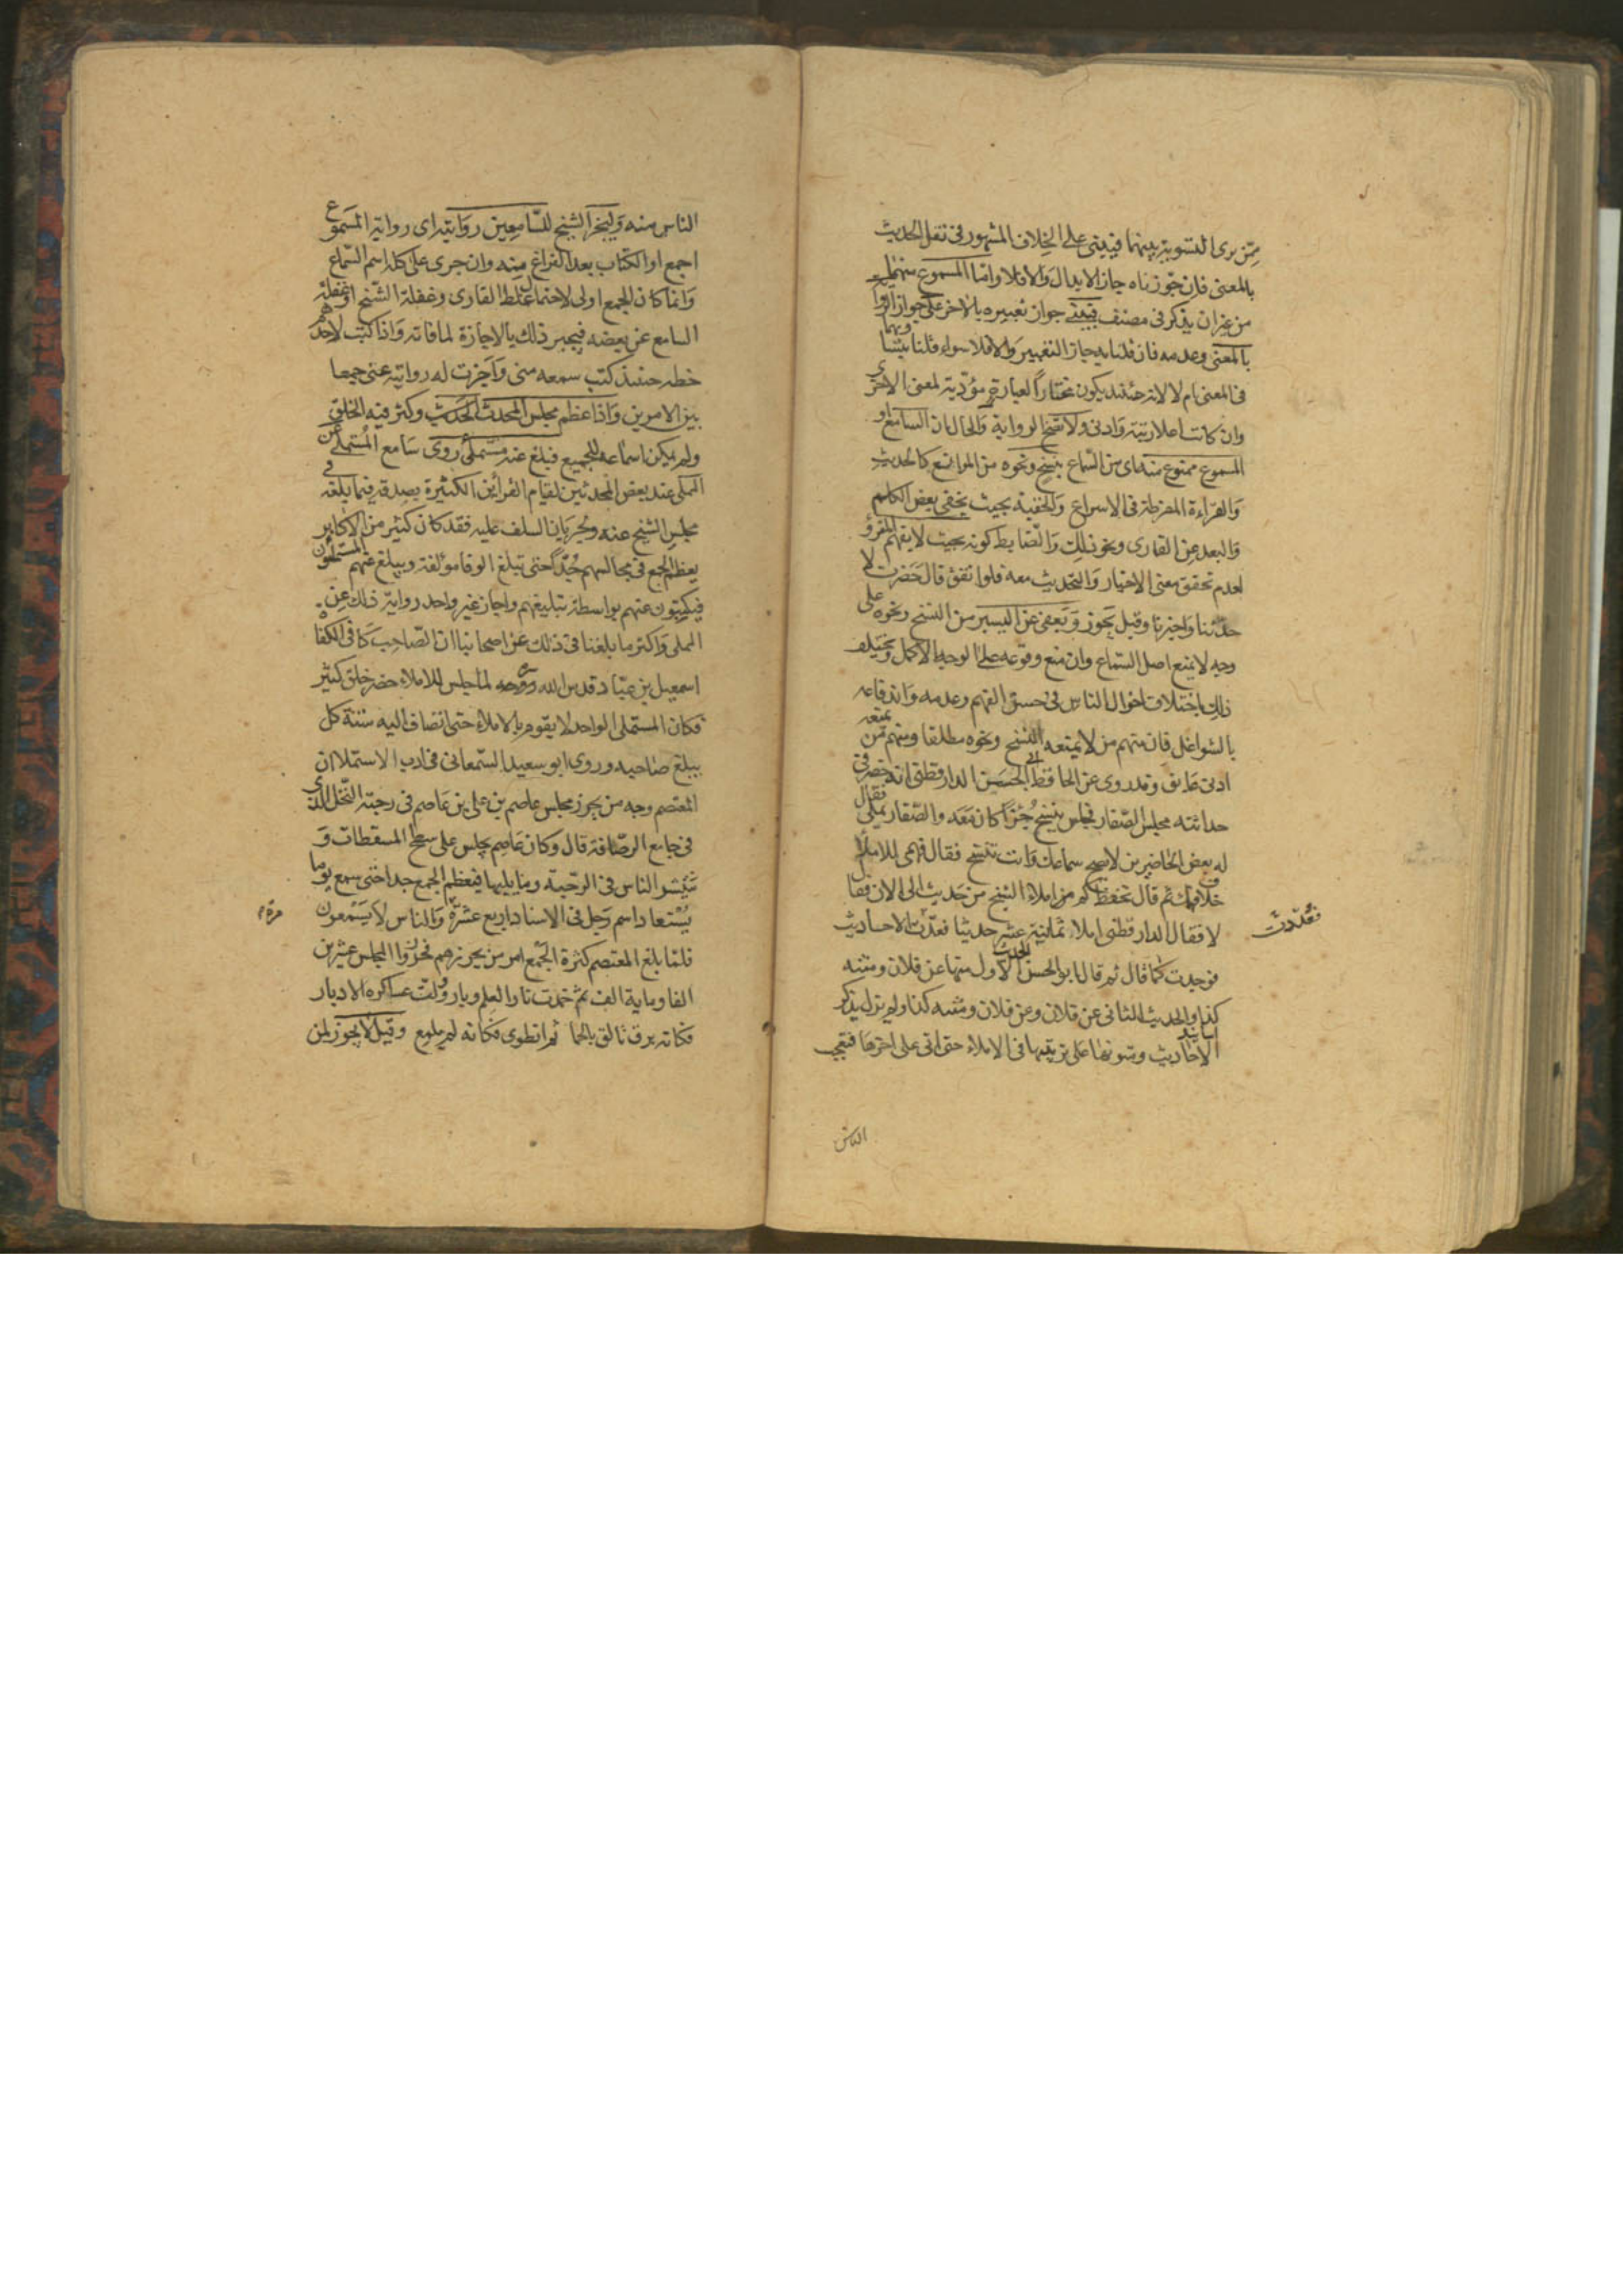 ممّن يرى التسوية بينهما فيبنى على الخلاف المشهور فى نقل الحديث
بالمعنى فان جوّزناه جاز الابدال والا فلا وامّا المسموع منهما
من غير ان يذكر فى مصنف فيبنى جواز تغييره بالاخر على جواز الرواية
بالمعنى وعدمه فان قلنا به جاز التغيير والا فلا سواء قلنا بتساويهما
فى المعنى ام لا لانه حينئذ يكون مختاراً لعبارة مؤدّية لمعنى الاخرى
وان كانت اعلا رتبة وادنى ولا تصح الرواية والحال ان السامع او
المسموع ممنوع منه اى من السّماع بنسخ ونحوه من الموانع كالحديث
والقراءة المفرطة فى الاسراع والخفية بحيث يخفى بعض الكلم
والبعد عن القارى ونحو ذلك والضابط كونه بحيث لا يفهم المقروّ
لعدم تحقق معنى الاخبار والتحديث معه فلو اتفق قال حضرت لا
حدّثنا واخبرنا وقيل يجوز ويعفى عن اليسير من النسخ ونحوه على
وجه لا يمنع اصل السّماع وان منع وقوعه على الوجه الاكمل ويختلف
ذلك باختلاف احوال الناس فى حسن الفهم وعدمه واندفاعه
بالشواغل فان منهم من لا يمنعه النسخ ونحوه مطلقا ومنهم من يمنعه
ادنى عائق وقد روى عن الحافظ ابى الحسن الدارقطنى انه حضر فى
حداثته مجلس الصّفار فجلس ينسخ جُزءًا كان معه والصّفار يملى فقال
له بعض الحاضرين لا يصح سماعك وانت تنسخ فقال فهمى للاملاء
خلاف فهمك ثم قال تحفظ كم من املاء الشيخ من حديث الى الان فقال
لا فقال الدارقطنى املاء ثمانية عشر حديثا فعدّت الاحاديث
فعُدّدت
فوجدت كما قال ثم قال ابو الحسن الحديث الاول منها عن فلان ومتنه
كذا والحديث الثانى عن فلان وعن فلان ومتنه كذا ولم يزل يذكر
اسانيد الاحاديث ومتونها على ترتيبها فى الاملاء حتى اتى على اخرها فتعجب
الناس
الناس منه وليجز الشيخ للسّامعين روايته اى رواية المسموع
اجمع او الكتاب بعد الفراغ منه وان جرى على كله اسم السّماع
وانما كان الجمع اولى لاحتمال غلط القارى وغفلة الشيخ او غفلة
السامع عن بعضه فيجبر ذلك بالاجازة لما فاته واذا كتب لاحدهم
خطه حينئذ كتب سمعه منى واجزت له روايته عنى جمعا
بين الامرين واذا عظم مجلس المحدث الحديث وكثر فيه الخلق
ولم يمكن اسماعه للجميع فبلغ عنه مستملى روى سامع المستملى عن
المملى عند بعض المحدثين لقيام القرائن الكثيرة بصدقه فيما بلغه فى
مجلس الشيخ عنه ولجريان السلف عليه فقد كان كثير من الاكابر
يعظم الجمع فى مجالسهم جدّا حتى تبلغ الوفا مؤلفة ويبلغ عنهم المستملون
فيكتبون عنهم بواسطة تبليغهم واجاز غير واحد رواية ذلك عن
المملى واكثر ما بلغنا فى ذلك عن اصحابنا ان الصّاحب كافى الكفاة
اسمعيل بن عبّاد قدس الله روحه لما جلس للاملاء حضر خلق كثير
فكان المستملى الواحد لا يقوم بالاملاء حتى انضاف اليه ستة كل
يبلغ صاحبه وروى ابو سعيد السّمعانى فى ادب الاستملا ان
المعتصم وجه من يحرز مجلس عاصم بن على بن عاصم فى رحبة النخل الذى
فى جامع الرصافة قال وكان عاصم يجلس على سطح المسقطات و
ينتشر الناس فى الرحبة وما يليها فيعظم الجمع جدا حتى سمع يوما
يُستعاد اسم رجل فى الاسناد اربع عشرة والناس لا يسمعون
مرة
فلما بلغ المعتصم كثرة الجمع امر من يحرزهم فحرزوا المجلس عشرين
الفا ومائة الف ثم خمدت نار العلم وبار وولت عساكره الادبار
فكانه برق تالق بالحما ثم انطوى فكانه لم يلمع وقيل لا يجوز لمن